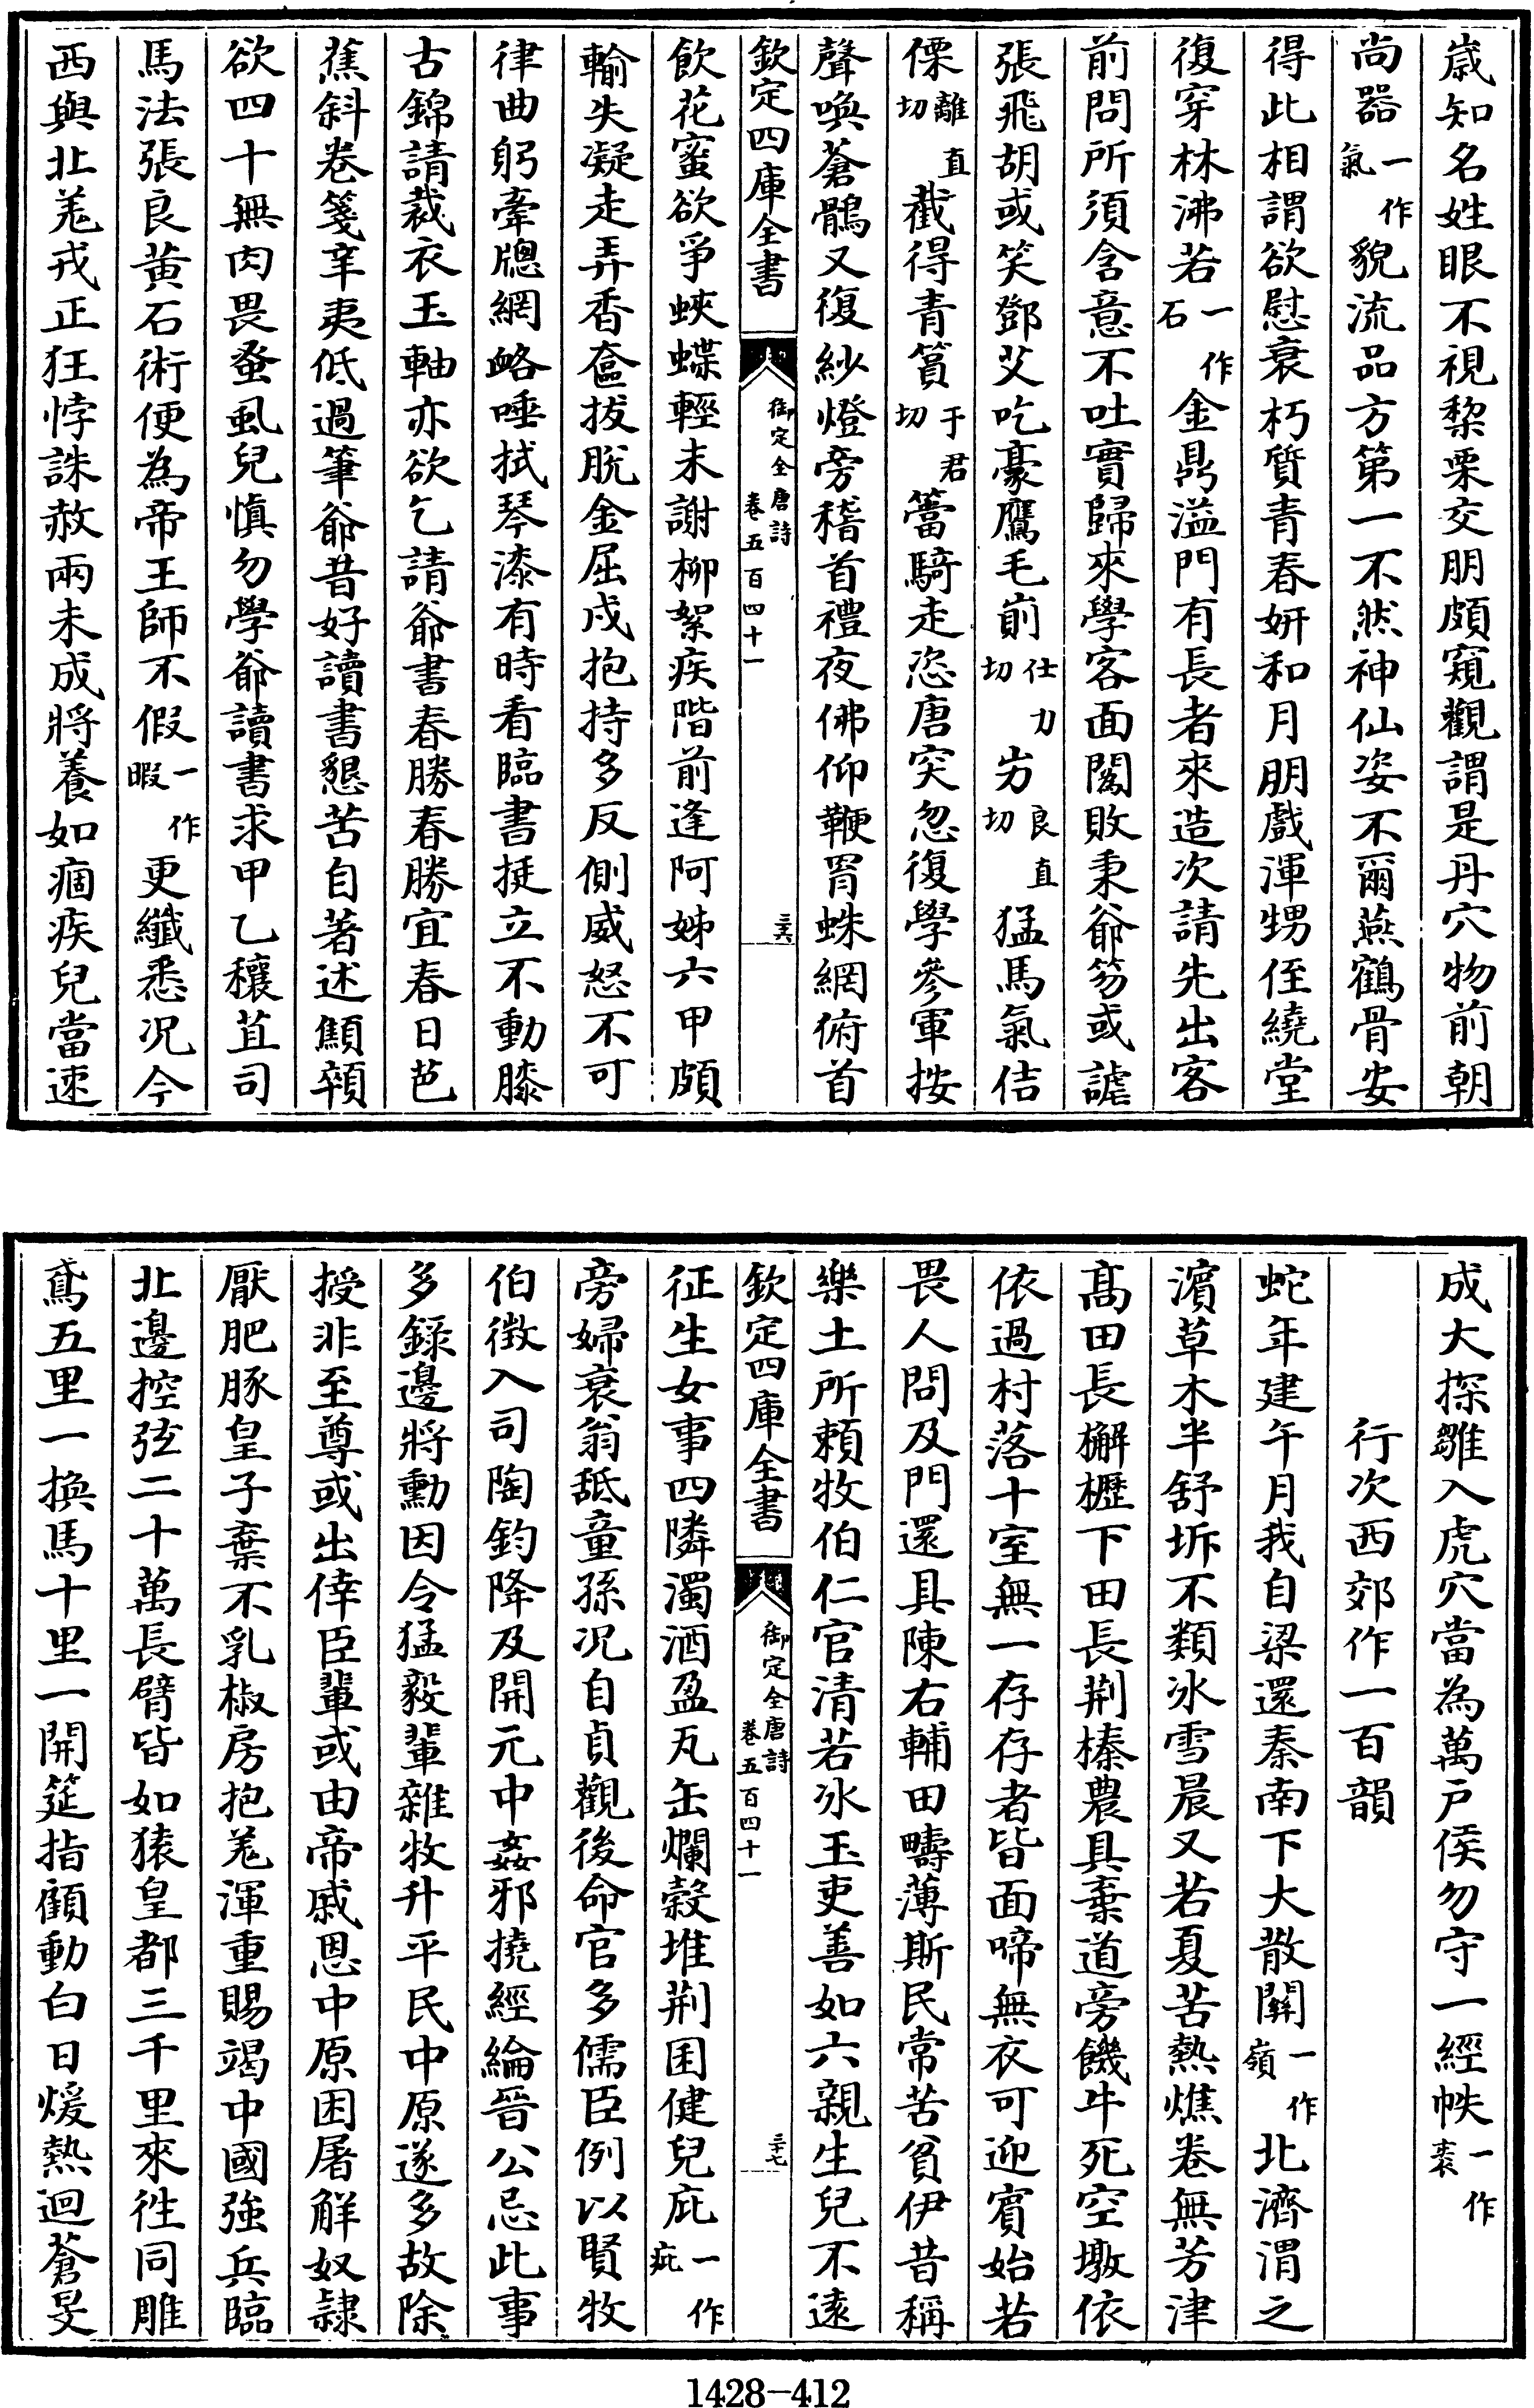 歳知名姓眼不視棃栗交朋頗窺觀謂是丹穴物前朝
尚器一作氣貌流品方第一不然神仙姿不爾燕鶴骨安
得此相謂欲慰衰朽質青春妍和月朋戲渾甥侄繞堂
復穿林沸若一作石金鼎溢門有長者來造次請先出客
前問所須含意不吐實歸來學客面䦱敗秉爺笏或謔
張飛胡或笑鄧艾吃豪鷹毛崱仕力切屴良直切猛馬氣佶
傈離直切截得青篔于君切簹騎走恣唐突忽復學參軍按
聲喚蒼鶻又復紗燈旁稽首禮夜佛仰鞭罥蛛網俯首
欽定四庫全書
御定全唐詩
卷五百四十一
三六
飲花蜜欲爭蛺蝶輕未謝柳絮疾階前逢阿姊六甲頗
輸失凝走弄香奩拔脫金屈戌抱持多反側威怒不可
律曲躬牽牕網衉唾拭琴漆有時看臨書挺立不動膝
古錦請裁衣玉軸亦欲乞請爺書春勝春勝宜春日芭
蕉斜卷箋辛夷低過筆爺昔好讀書懇苦自著述顦顇
欲四十無肉畏蚤虱兒慎勿學爺讀書求甲乙穰苴司
馬法張良黃石術便為帝王師不假一作暇更纖悉况今
西與北羗戎正狂悖誅赦兩未成將養如痼疾兒當速
成大探雛入虎穴當為萬戶侯勿守一經帙一作袠
行次西郊作一百韻
蛇年建午月我自梁還秦南下大散關一作嶺北濟渭之
濱草木半舒坼不類冰雪晨又若夏苦熱燋卷無芳津
高田長槲櫪下田長荆榛農具棄道旁饑牛死空墩依
依過村落十室無一存存者皆面啼無衣可迎賓始若
畏人問及門還具陳右輔田疇薄斯民常苦貧伊昔稱
樂土所賴牧伯仁官清若冰玉吏善如六親生兒不遠
欽定四庫全書
御定全唐詩
卷五百四十一
三七
征生女事四隣濁酒盈瓦缶爛榖堆荆囷健兒庇一作疪
旁婦衰翁舐童孫况自貞觀後命官多儒臣例以賢牧
伯徴入司陶鈞降及開元中姦邪撓經綸晉公忌此事
多錄邊將勳因令猛毅輩雜牧升平民中原遂多故除
授非至尊或出倖臣輩或由帝戚恩中原困屠解奴隸
厭肥豚皇子棄不乳椒房抱羗渾重賜竭中國強兵臨
北邊控弦二十萬長臂皆如猿皇都三千里來徃同雕
鳶五里一換馬十里一開筵指顧動白日煖熱迴蒼旻
1428-412